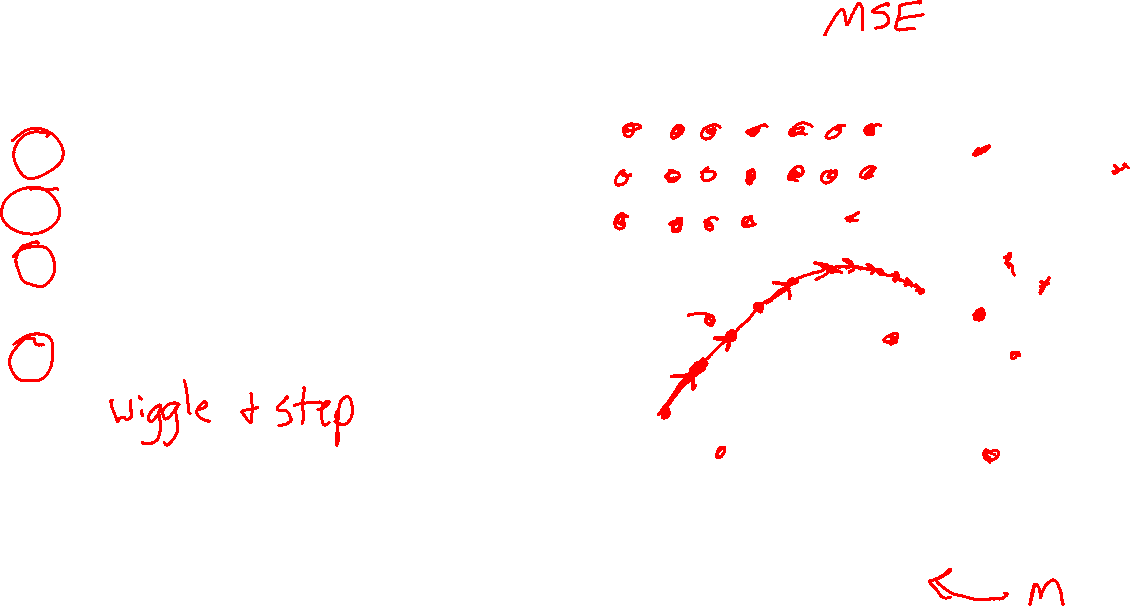 MSE
wiggle + step
m